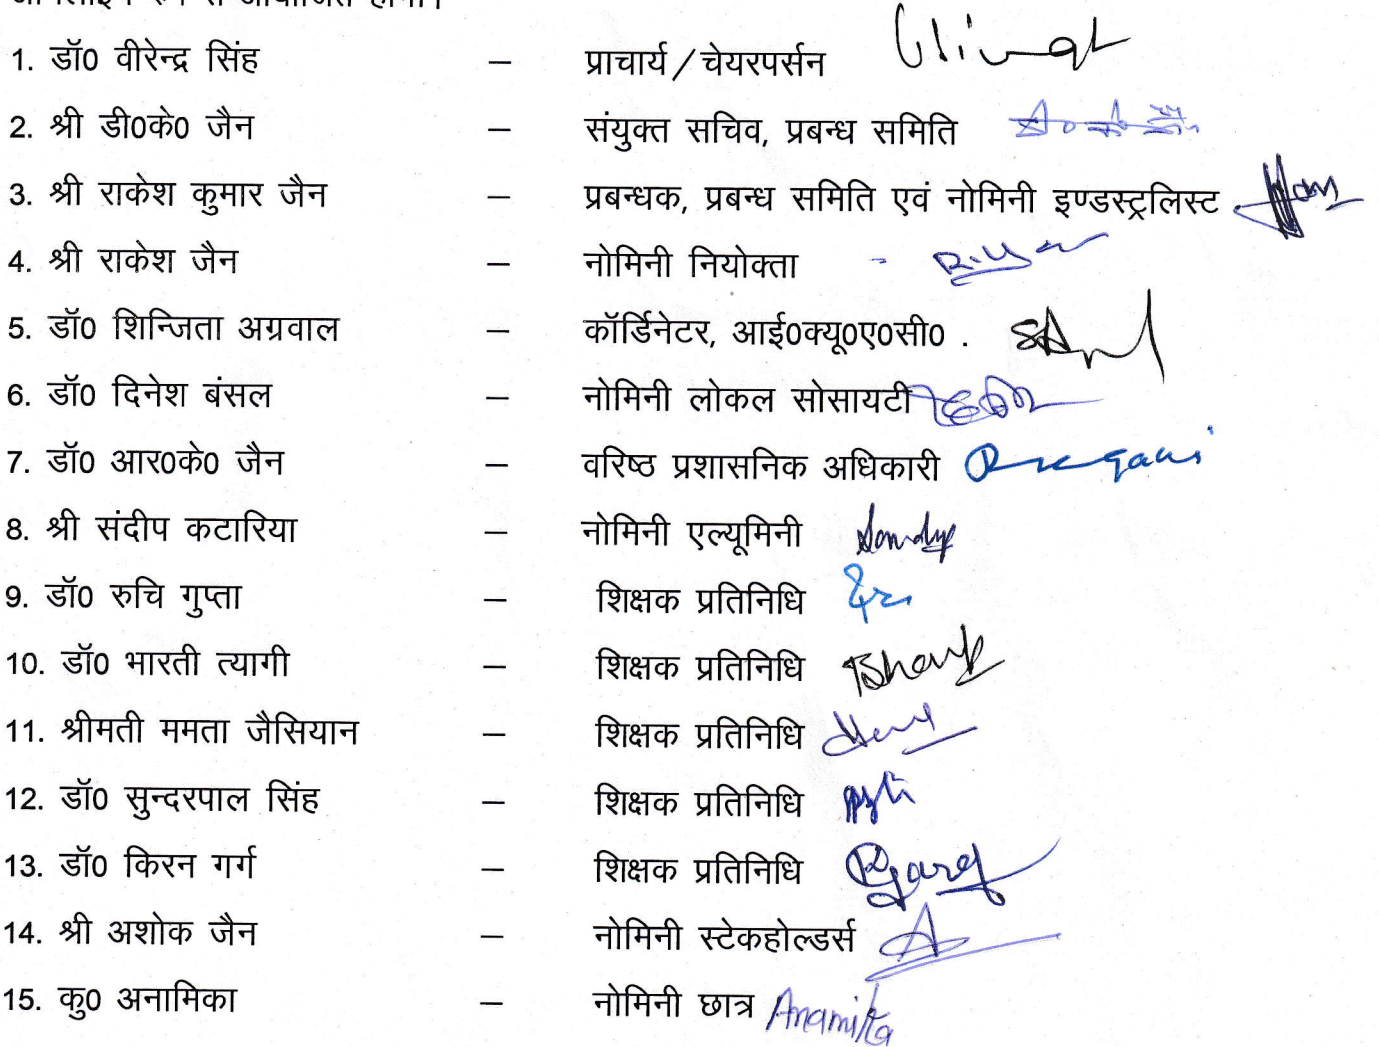 1. डॉ0 वीरेन्द्र सिंह – प्राचार्य/चेयरपर्सन
2. श्री डी0के0 जैन – संयुक्त सचिव, प्रबन्ध समिति
3. श्री राकेश कुमार जैन – प्रबन्धक, प्रबन्ध समिति एवं नोमिनी इण्डस्ट्रलिस्ट
4. श्री राकेश जैन – नोमिनी नियोक्ता
5. डॉ0 शिन्जिता अग्रवाल – कॉर्डिनेटर, आई0क्यू0ए0सी0 .
6. डॉ0 दिनेश बंसल – नोमिनी लोकल सोसायटी
7. डॉ0 आर0के0 जैन – वरिष्ठ प्रशासनिक अधिकारी
8. श्री संदीप कटारिया – नोमिनी एल्यूमिनी
9. डॉ0 रुचि गुप्ता – शिक्षक प्रतिनिधि
10. डॉ0 भारती त्यागी – शिक्षक प्रतिनिधि
11. श्रीमती ममता जैसियान – शिक्षक प्रतिनिधि
12. डॉ0 सुन्दरपाल सिंह – शिक्षक प्रतिनिधि
13. डॉ0 किरन गर्ग – शिक्षक प्रतिनिधि KGarg
14. श्री अशोक जैन – नोमिनी स्टेकहोल्डर्स
15. कु0 अनामिका – नोमिनी छात्र Anamika